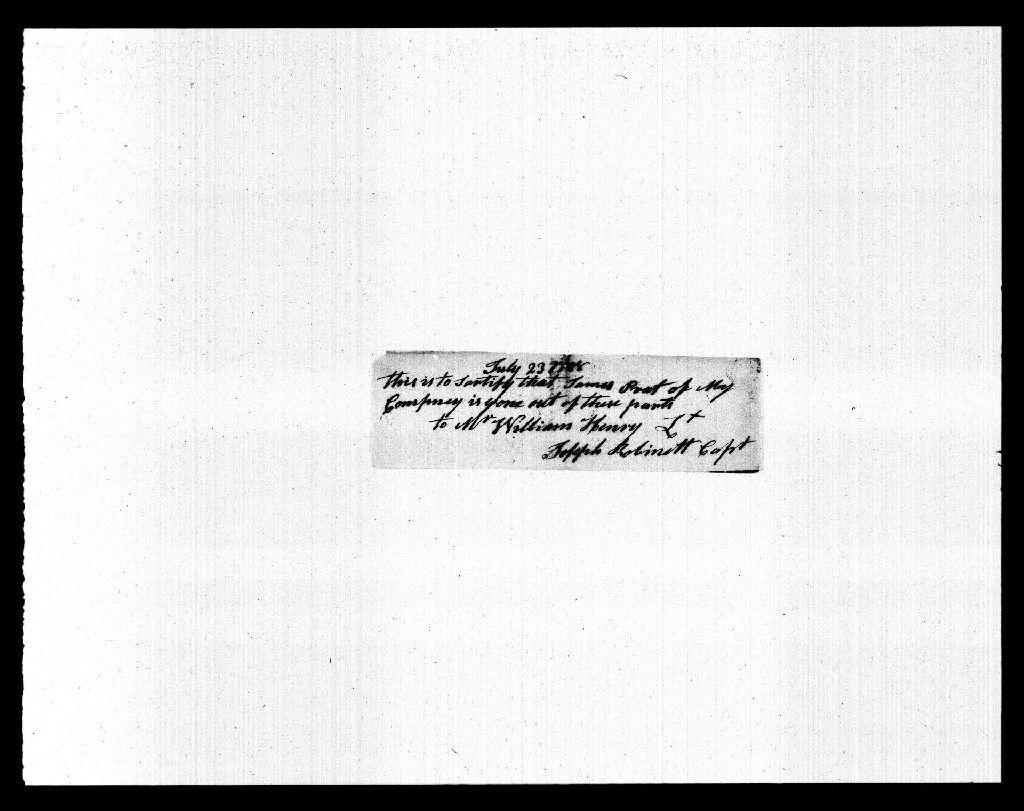 July 23
this is to Sartify that James Prat of My
Compney is gone out of these parts
to Mr William Henry Lt
Joseph Robinett Capt